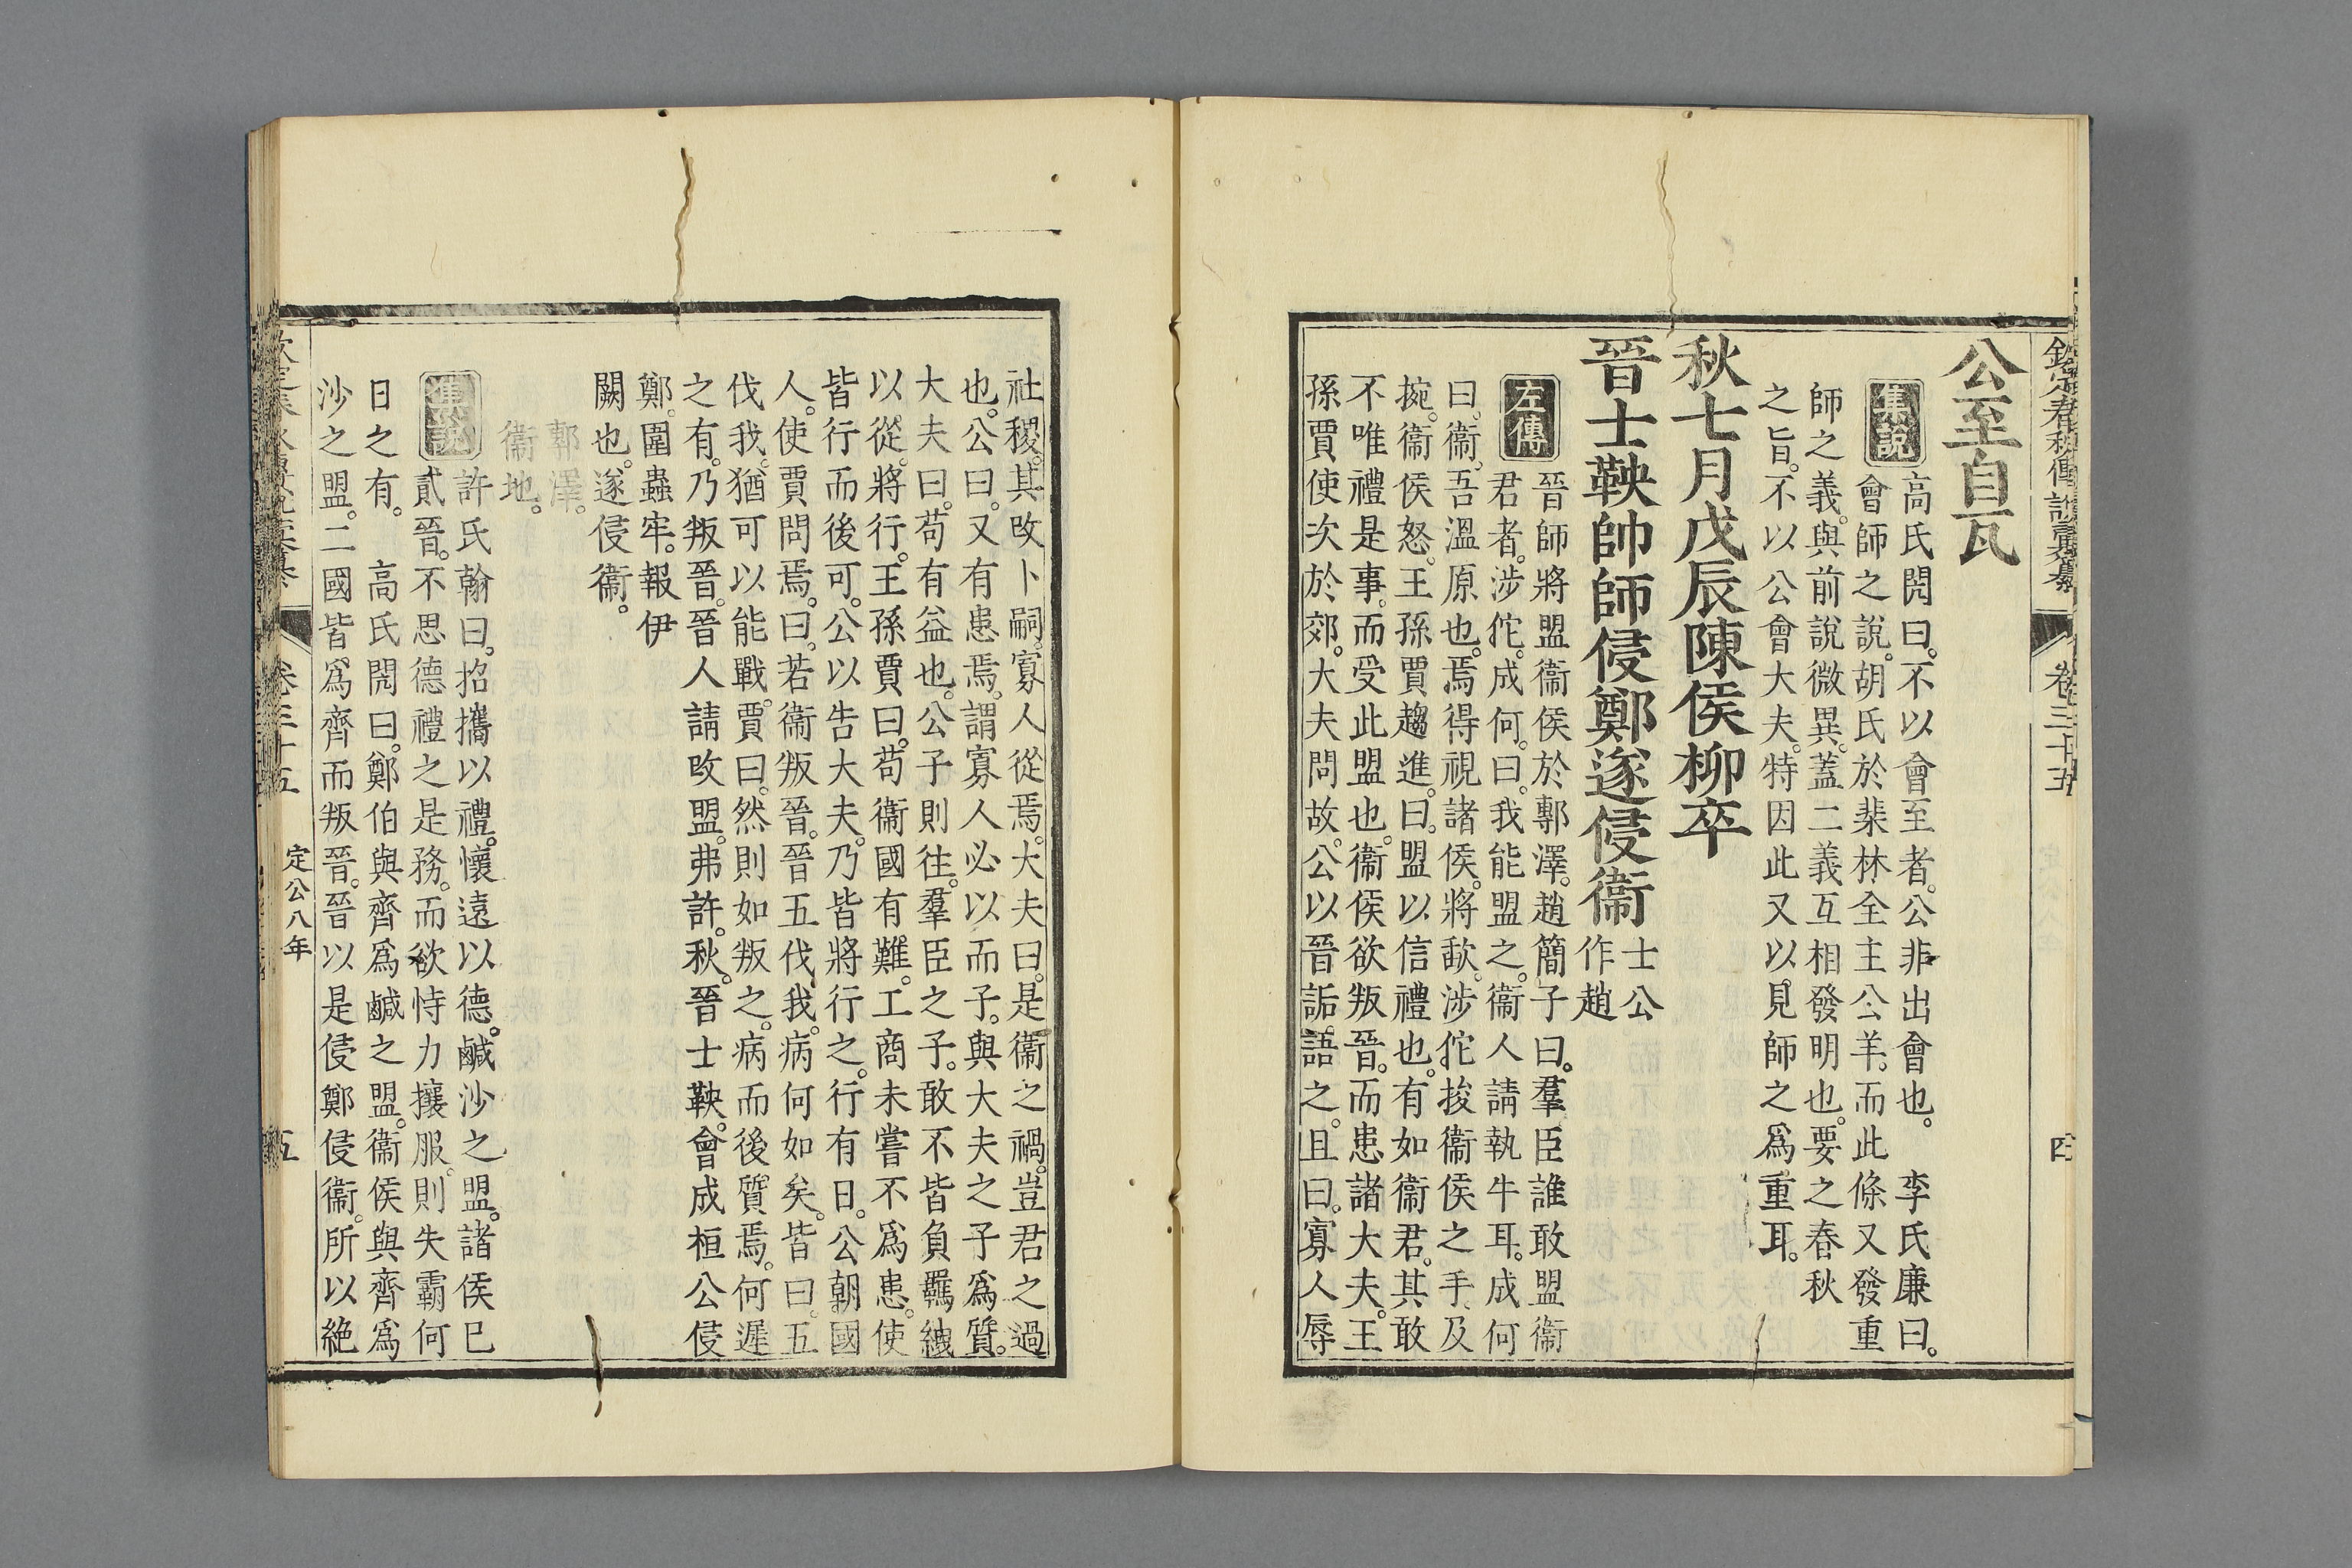 欽定春秋傳說彙纂 卷三十五 四
公至自瓦
集說
高氏閌曰。不以會至者。公非出會也。 李氏廉曰。
會師之說。胡氏於棐林全主公羊。而此條又發重
師之義。與前說微異。蓋二義互相發明也。要之春秋
之旨。不以公會大夫。特因此又以見師之爲重耳。
秋七月戊辰陳侯柳卒
晉士鞅帥師侵鄭遂侵衞 士公作趙
左傳
晉師將盟衞侯於鄟澤。趙簡子曰。羣臣誰敢盟衞
君者。涉佗。成何。曰。我能盟之。衞人請執牛耳。成何
曰。衞。吾溫原也。焉得視諸侯。將歃。涉佗捘衞侯之手、及
捥。衞侯怒。王孫賈趨進。曰。盟以信禮也。有如衞君。其敢
不唯禮是事。而受此盟也。衞侯欲叛晉。而患諸大夫。王
孫賈使次於郊。大夫問故。公以晉詬。語之。且曰。寡人辱
社稷。其改卜嗣。寡人從焉。大夫曰。是衞之禍。豈君之過
也。公曰。又有患焉。謂寡人必以而子。與大夫之子爲質。
大夫曰。苟有益也。公子則往。羣臣之子。敢不皆負羈絏
以從。將行。王孫賈曰。苟衞國有難。工商未嘗不爲患。使
皆行而後可。公以告大夫。乃皆將行之。行有日。公朝國
人。使賈問焉。曰。若衞叛晉。晉五伐我。病何如矣。皆曰。五
伐我。猶可以能戰。賈曰。然則如叛之。病而後質焉。何遲
之有。乃叛晉。晉人請改盟。弗許。秋。晉士鞅。會成桓公侵
鄭。圍蟲牢。報伊
闕也。遂侵衞。
鄟澤。
衞地。
集說
許氏翰曰。招攜以禮。懷遠以德。鹹沙之盟。諸侯已
貳晉。不思德禮之是務。而欲恃力攘服。則失霸何
日之有。 高氏閌曰。鄭伯與齊爲鹹之盟。衞侯與齊爲
沙之盟。二國皆爲齊而叛晉。晉以是侵鄭侵衞。所以絶
卷三十五 定公八年 五